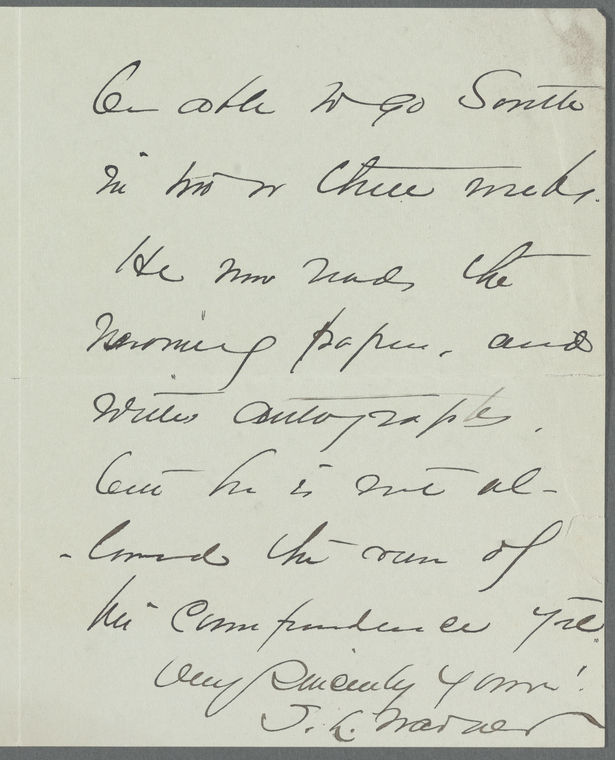 be able to go South
in two or three weeks.
He now reads the
morning papers, and
writes autographs,
but he is not al-
-lowed the run of
his Correspondence yet.
Very Sincerely Yours.
J. L. Warner